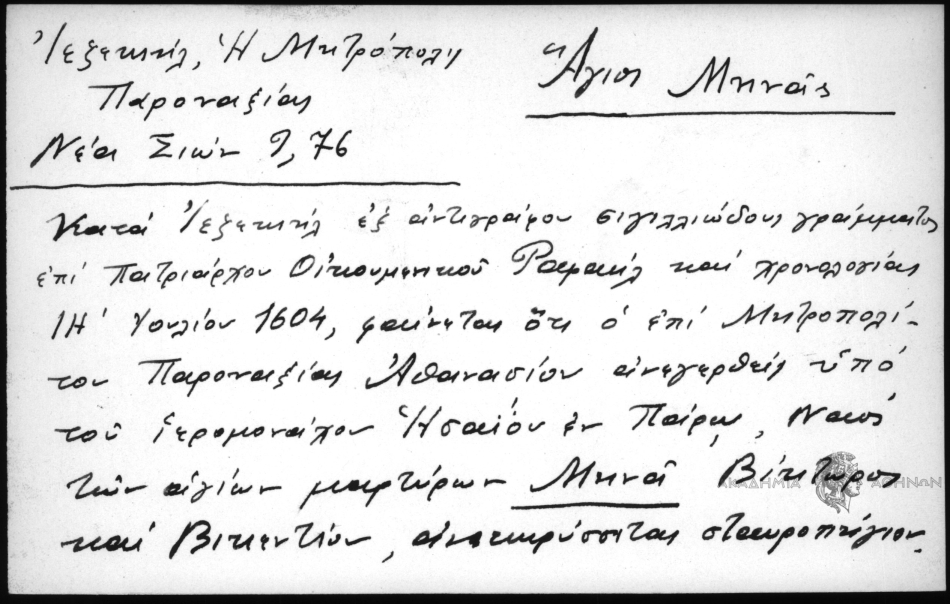 Ἰεζεκιήλ, Ἡ Μητρόπολη
Παροναξίας
Νέα Σιών 9, 76
Ἅγιος Μηνᾶς
Κατά Ἰεζεκιήλ ἐξ ἀντιγράφου σιγιλλιώδους γράμματος
ἐπί Πατριάρχου Οἰκουμενικοῦ Ραφαήλ καί χρονολογίας
ΙΗ' Ἰουλίου 1604, φαίνεται ὅτι ὁ ἐπί Μητροπολί-
του Παροναξίας Ἀθανασίου ἀνεγερθείς ὑπό
τοῦ ἱερομονάχου Ἠσαΐου ἐν Πάρῳ, Ναός
τῶν ἁγίων μαρτύρων Μηνᾶ Βίκτωρος
καί Βικεντίου, ἀνακηρύσσεται σταυροπήγιον.
ΑΚΑΔΗΜΙΑ ΑΘΗΝΩΝ